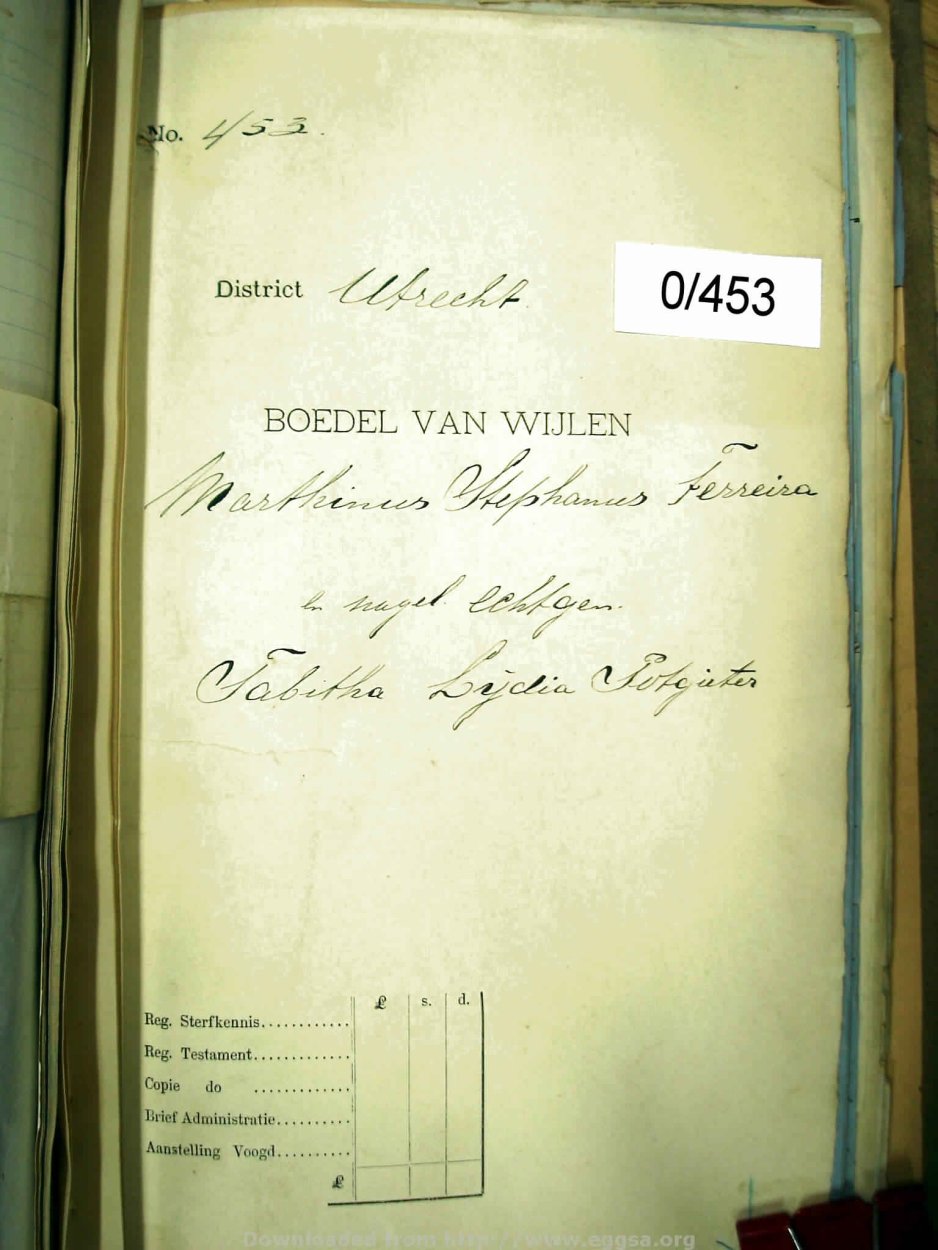 No. 453.
District Utrecht.
0/453
BOEDEL VAN WIJLEN
Marthinus Stephanus Ferreira
en nagel. echtgen.
Tabitha Lydia Potgieter
£ s. d.
Reg. Sterfkennis............
Reg. Testament.............
Copie do .............
Brief Administratie..........
Aanstelling Voogd..........
£
Downloaded from http://www.eggsa.org